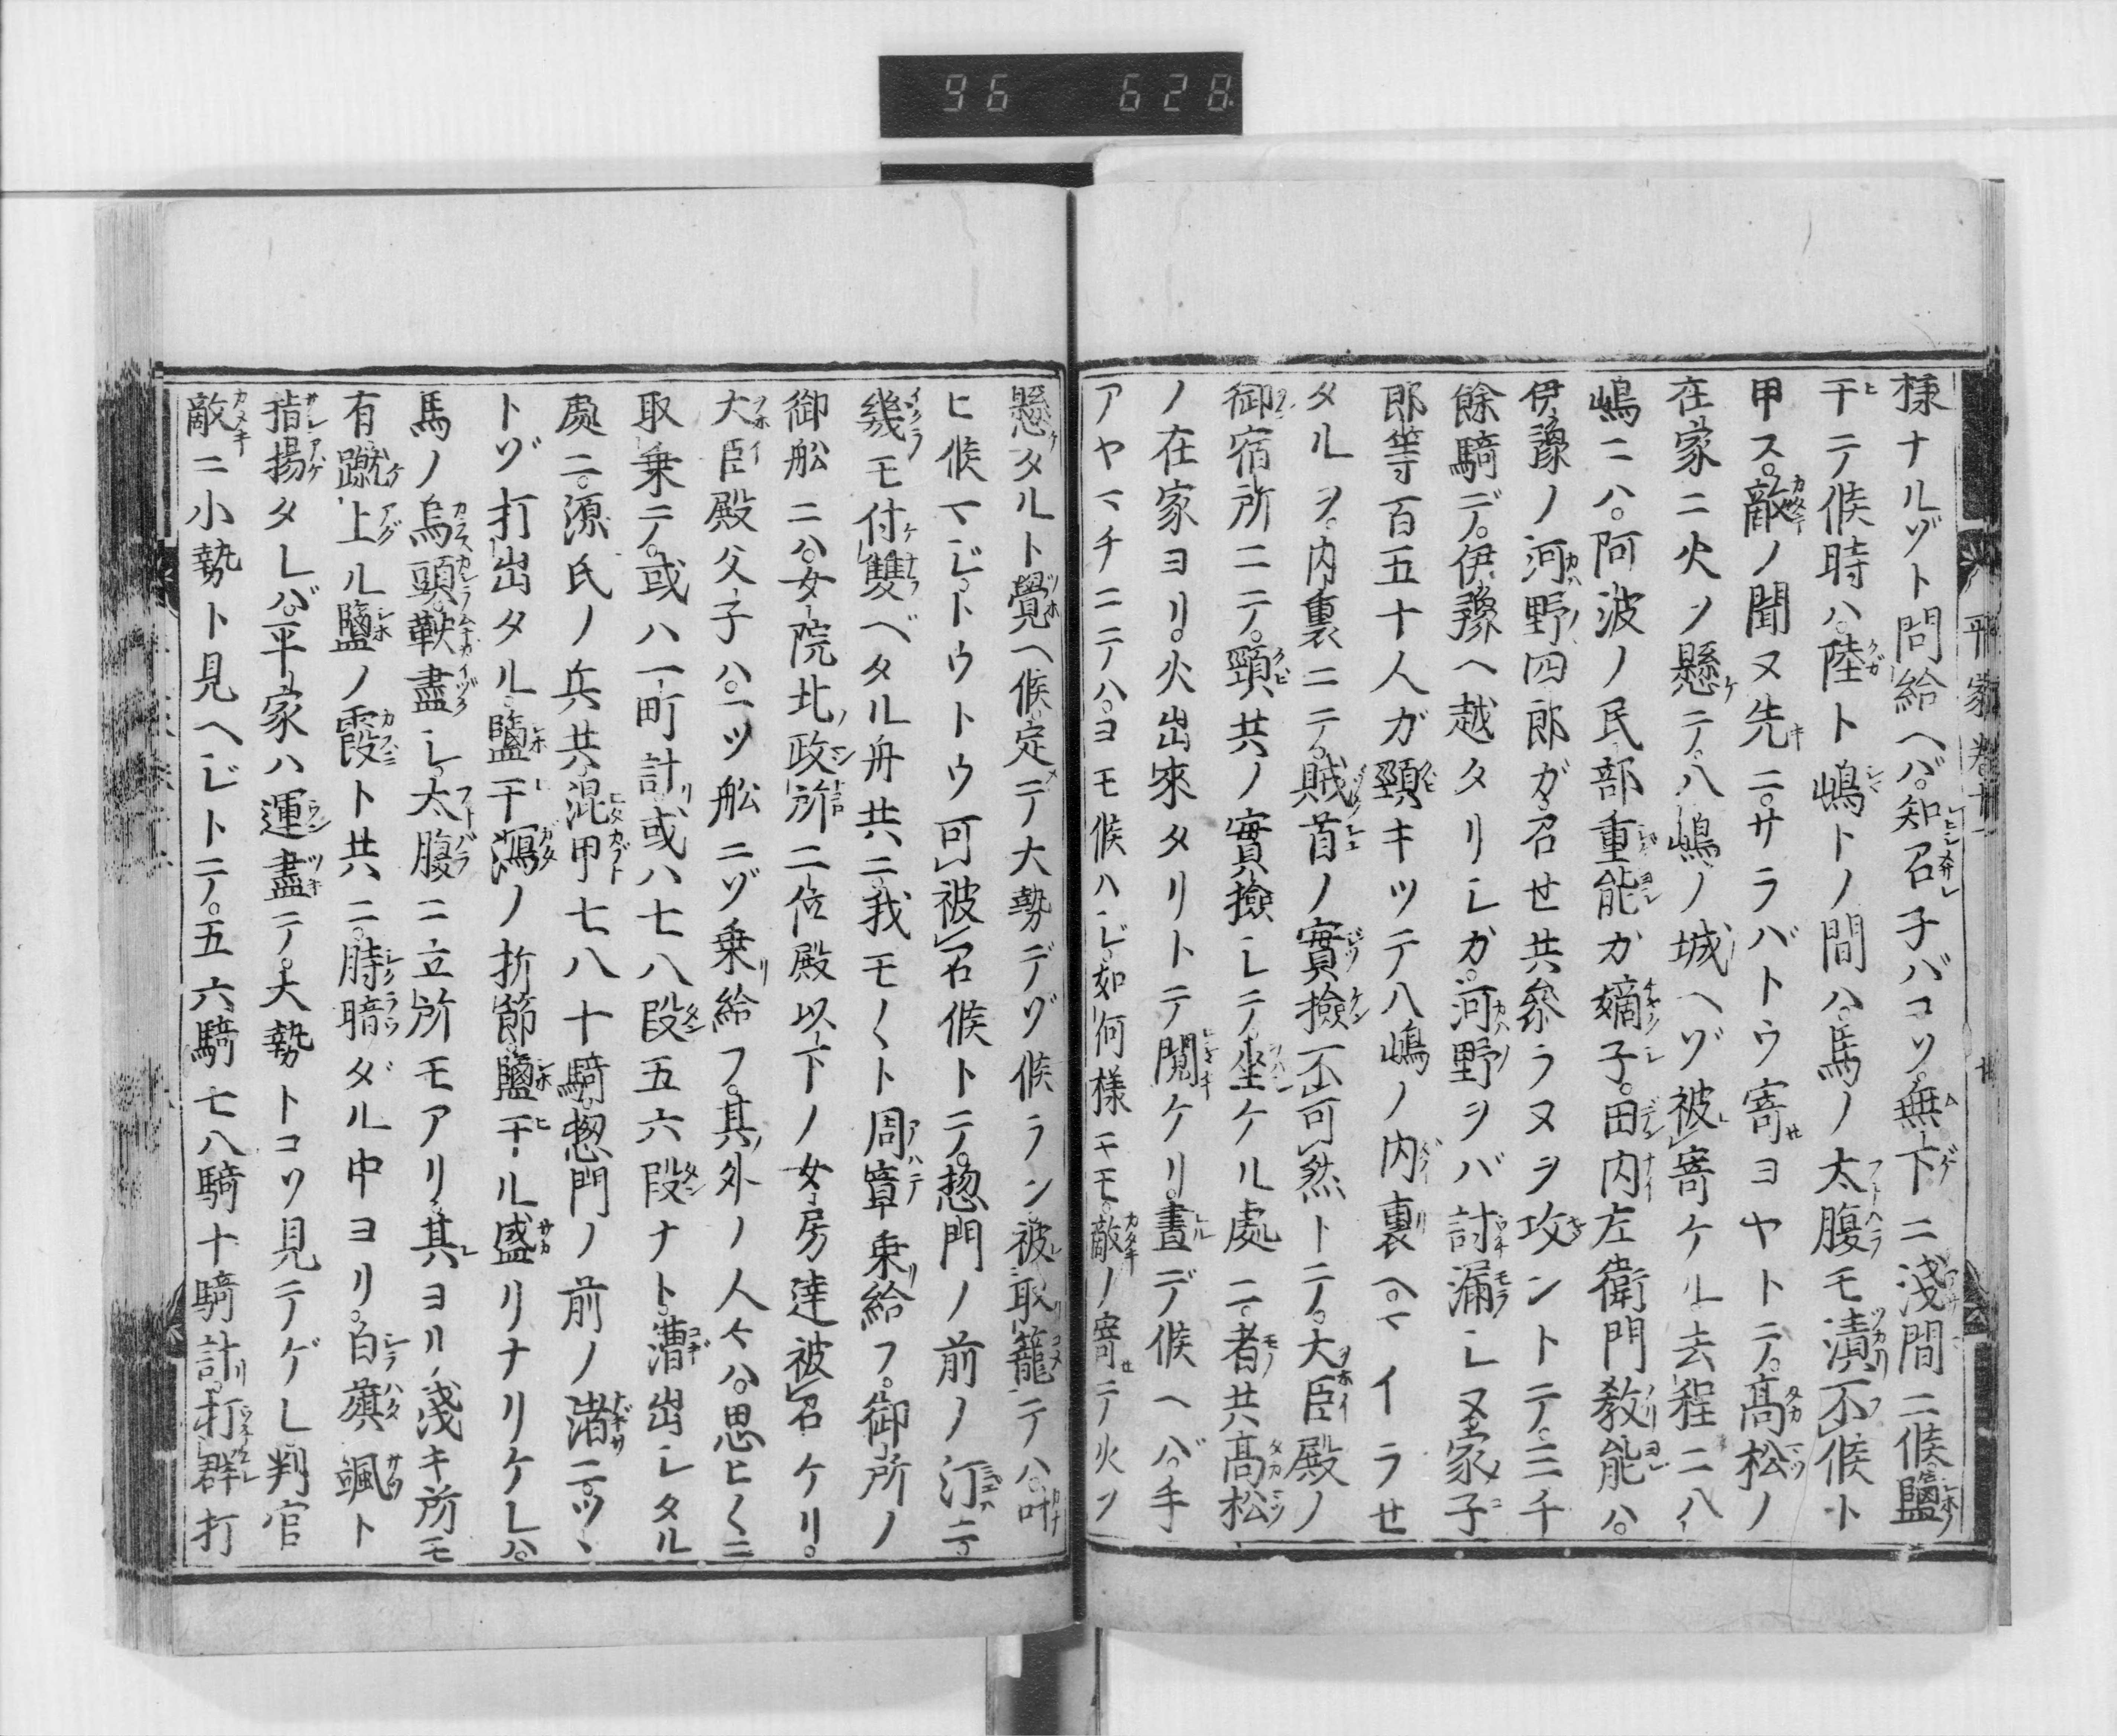 96 628
平家巻十一
様ナルゾト問給ヘバ。知召子バコソ。無下ニ浅間ニ候。鹽
干テ候時ハ。陸ト嶋トノ間ハ。馬ノ太腹モ漬不候ト
申ス。敵ノ聞ヌ先ニ。サラバトウ寄ヨヤトテ。髙松ノ
在家ニ火ヲ懸テ。八嶋ノ城ヘゾ被寄ケル。去程ニ八
嶋ニハ。阿波ノ民部重能カ嫡子。田内左衛門教能ハ。
伊豫ノ河野四郎ガ。召セ共参ラヌヲ攻ントテ。三千
餘騎デ。伊豫ヘ越タリシカ。河野ヲバ討漏シヌ。家子
郎等百五十人ガ頸キツテ八嶋ノ内裏ヘマイラセ
タルヲ。内裏ニテ。賊首ノ實撿不可然トテ。大臣殿ノ
御宿所ニテ。頸共ノ實撿シテ坐ケル處ニ。者共髙松
ノ在家ヨリ。火出來タリトテ鬩ケリ。晝デ候ヘバ。手
アヤマチニテハ。ヨモ候ハジ。如何様ニモ。敵ノ寄テ火ヲ
懸タルト覺ヘ候。定テ大勢デゾ候ラン。被取籠テハ。叶
ヒ候マジ。トウトウ可被召候トテ。惣門ノ前ノ汀ニ
幾モ付雙ベタル舟共ニ。我モ〱ト周章乗給フ。御所ノ
御舩ニハ。女院北政所二位殿以下ノ女房達被召ケリ。
大臣殿父子ハ。一ツ舩ニゾ乗給フ。其外ノ人々ハ。思ヒ〱ニ
取乗テ。或ハ一町計或ハ七八段五六段ナト。漕出シタル
處ニ。源氏ノ兵共。混甲七八十騎。惣門ノ前ノ渚ニ。ツヽ
トゾ打出タル。鹽干瀉ノ折節。鹽干ル盛リナリケレハ。
馬ノ烏頭。鞅盡シ。太腹ニ立所モアリ。其ヨリ浅キ所モ
有。蹴上ル鹽ノ霞ト共ニ。時暗ダル中ヨリ。白旗颯ト
指揚タレバ。平家ハ運盡テ。大勢トコソ見テゲレ。判官
敵ニ小勢ト見ヘジトテ。五六騎七八騎十騎計。打群打